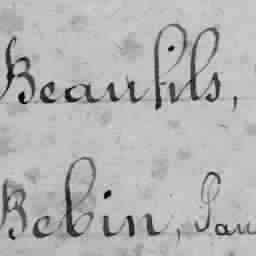 Beaufils,
Bebin, Pau